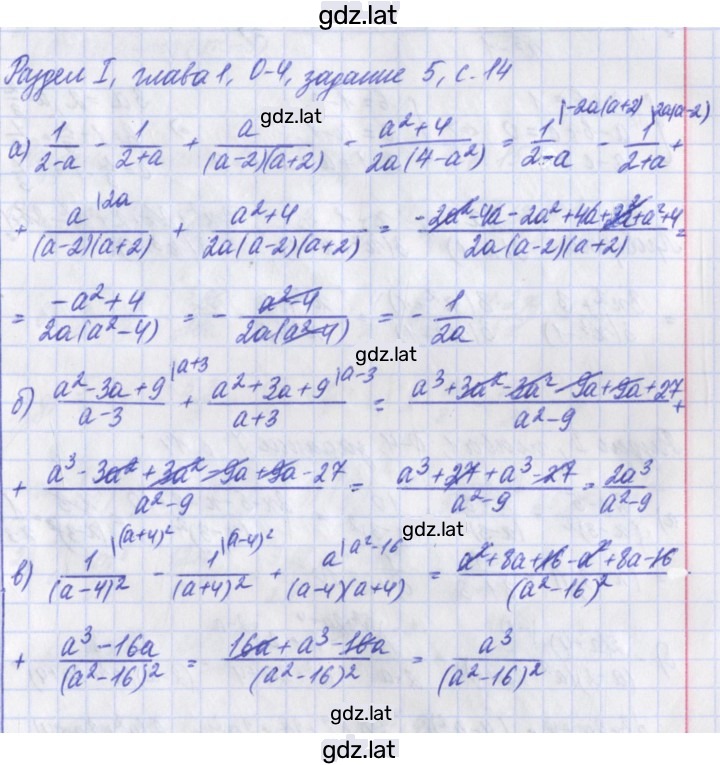 gdz.lat
Раздел I, глава 1, О-4, задание 5, с. 14
gdz.lat
а) 1/(2-a) - 1/(2+a) + a/((a-2)(a+2)) - (a²+4)/(2a(4-a²)) = 1/(2-a) |-2a(a+2) - 1/(2+a) |2a(a-2) +
+ a/((a-2)(a+2)) |2a + (a²+4)/(2a(a-2)(a+2)) = (-2a²-4a-2a²+4a+2a²+a²+4)/(2a(a-2)(a+2)) =
= (-a²+4)/(2a(a²-4)) = - (a²-4)/(2a(a²-4)) = - 1/(2a)
gdz.lat
б) (a²-3a+9)/(a-3) |a+3 + (a²+3a+9)/(a+3) |a-3 = (a³+3a²-3a²-9a+9a+27)/(a²-9) +
+ (a³-3a²+3a²-9a+9a-27)/(a²-9) = (a³+27+a³-27)/(a²-9) = 2a³/(a²-9)
gdz.lat
в) 1/(a-4)² |(a+4)² - 1/(a+4)² |(a-4)² + a/((a-4)(a+4)) |a²-16 = (a²+8a+16-a²+8a-16)/(a²-16)²
+ (a³-16a)/(a²-16)² = (16a+a³-16a)/(a²-16)² = a³/(a²-16)²
gdz.lat
gdz.lat